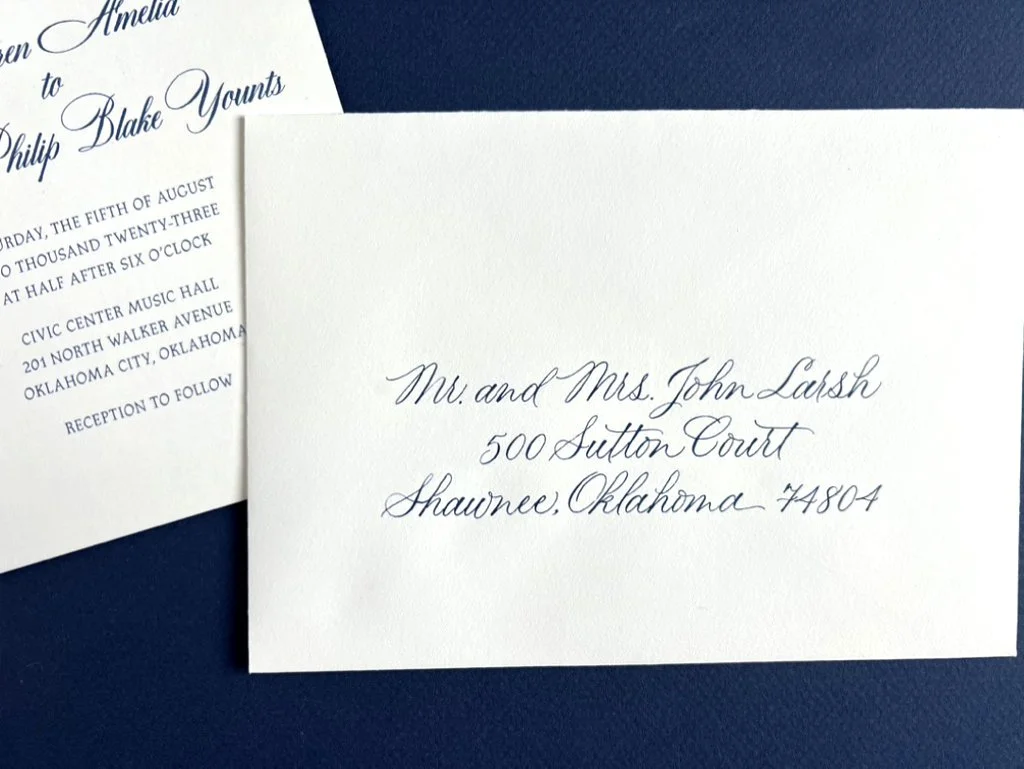 Amelia
to
Philip Blake Younts
THE FIFTH OF AUGUST
THOUSAND TWENTY-THREE
AT HALF AFTER SIX O'CLOCK
CIVIC CENTER MUSIC HALL
201 NORTH WALKER AVENUE
OKLAHOMA CITY, OKLAHOMA
RECEPTION TO FOLLOW
Mr. and Mrs. John Larsh
500 Sutton Court
Shawnee, Oklahoma 74804